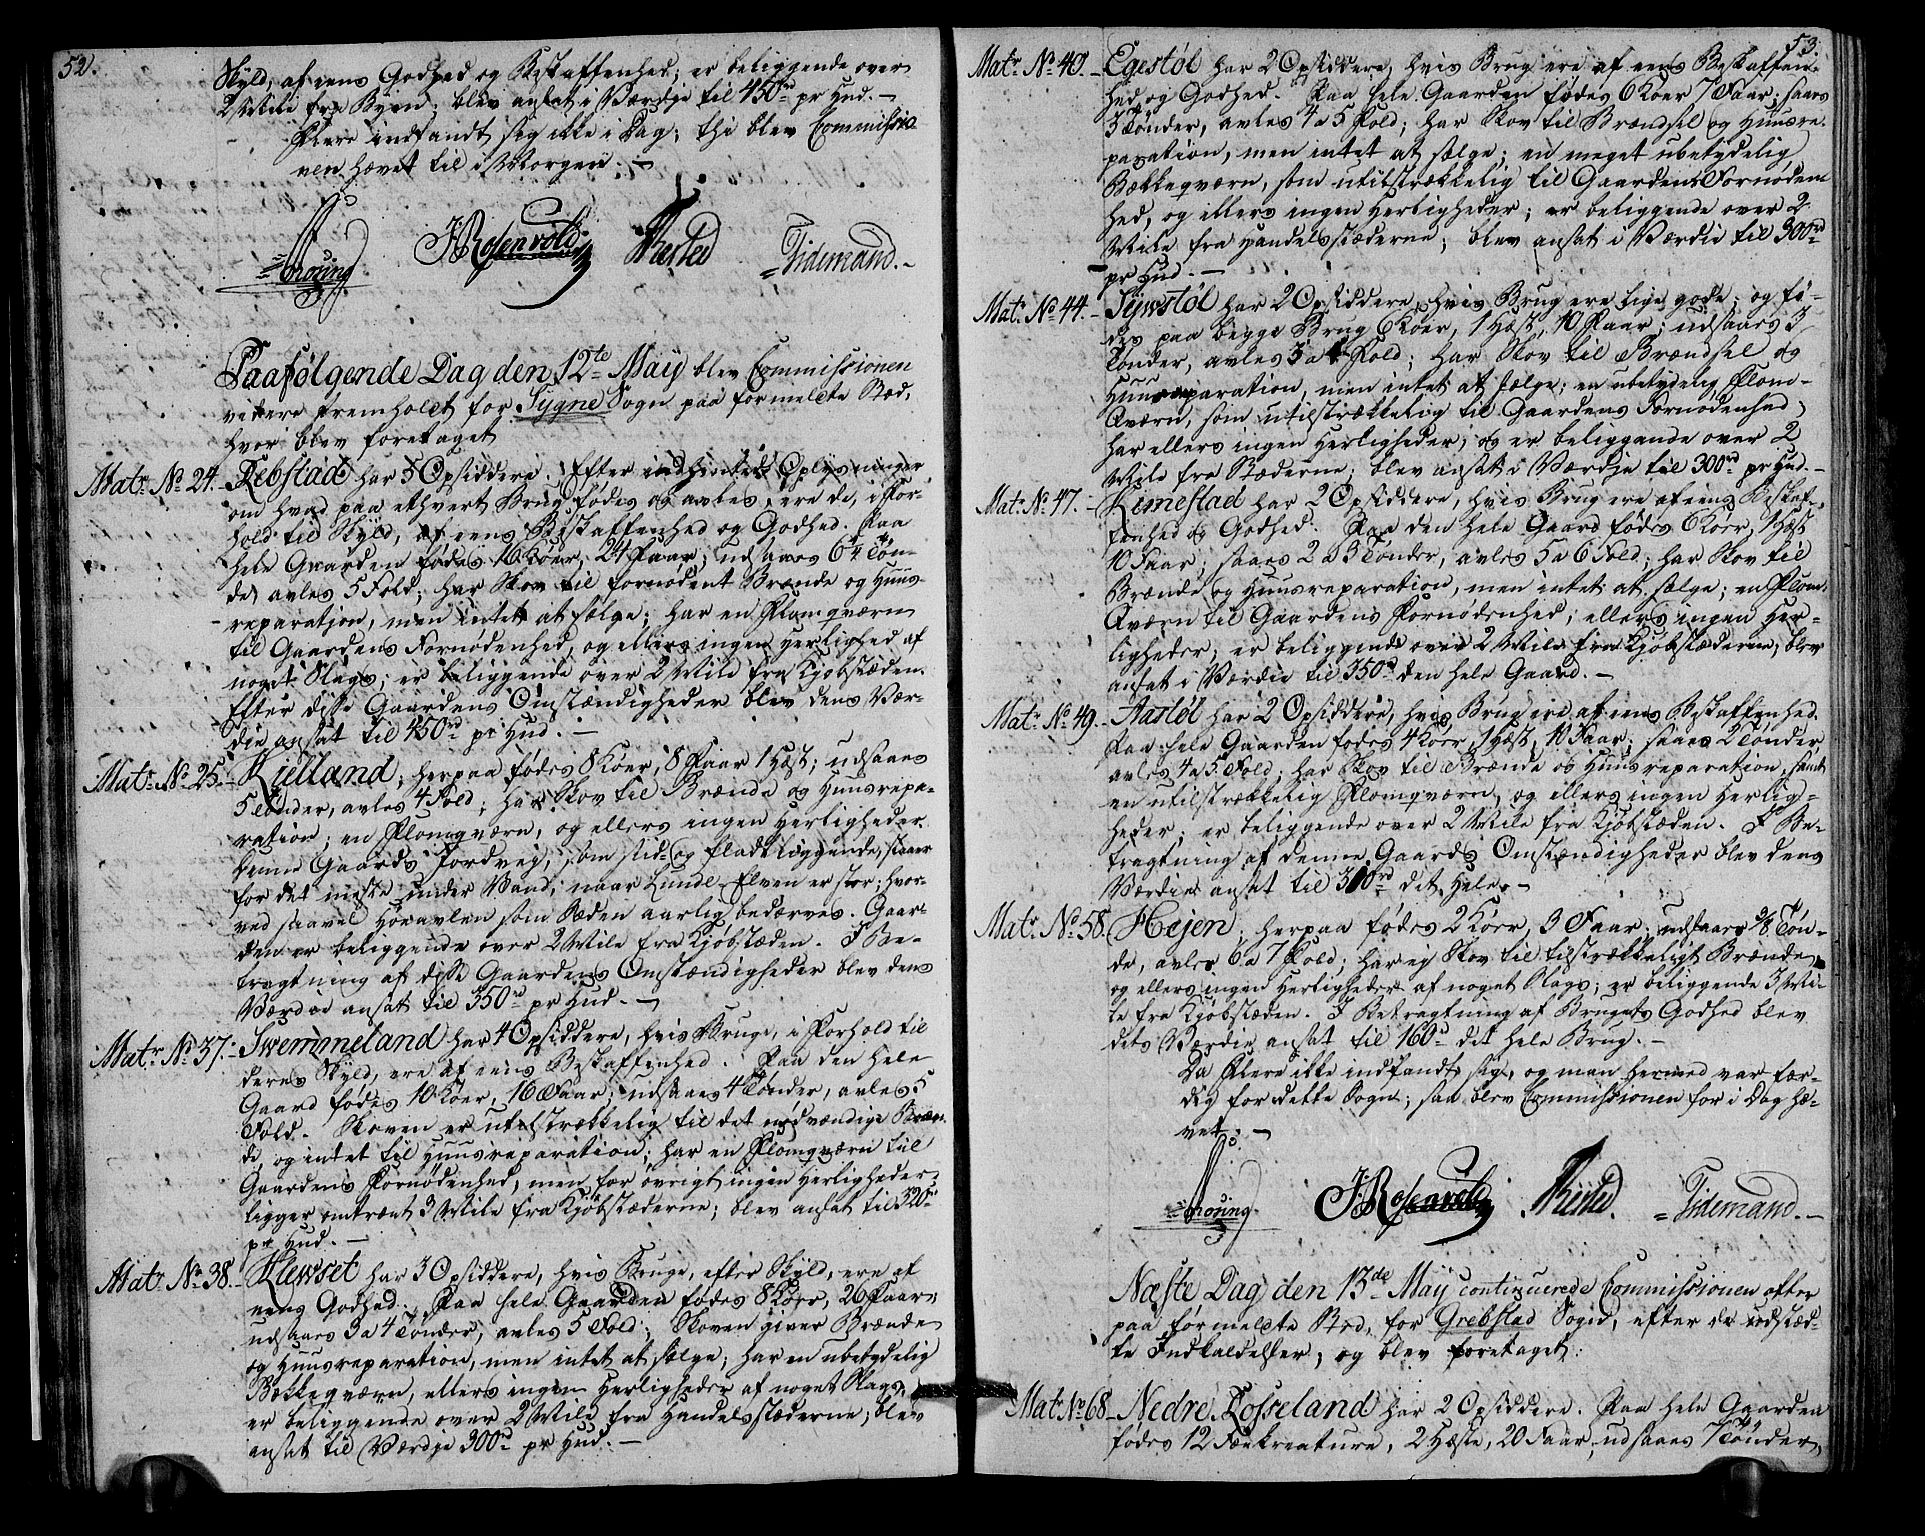 52.
Skyld, af eens Godhed og Beskaffenhed; er beliggende over
2 Miile fra Byen; blev ansat i Værdie til 450rd pr Hud. —
Flere indfandt sig ikke i Dag; thi blev Commissio-
nen hævet til i Morgen. —
JRosenvold Tidemand. —
Paafølgende Dag den 12te May blev Commissionen
videre fremholdt for Sygne Sogn paa formeldte Sted,
hvor blev foretaget
Matr. No 24. Rebstad har 5 Opsiddere. Efter indhentede Oplysninger
om hvad paa ethvert Brug fødes og avles, ere de, i For-
hold til Skyld, af eens Beskaffenhed og Godhed. Paa
hele Gaarden fødes 16 Køer, 24 Faar; udsaaes 6 1/4 Tøn-
de, avles 5 Fold; har Skov til fornødent Brænde og Huus-
reparation, men intet at sælge; har en Flomqværn
til Gaardens Fornødenhed, og ellers ingen Herlighed af
noget Slags; er beliggende over 2 Miile fra Kjøbstæden.
Efter disse Gaardens Omstændigheder blev dens Vær-
die ansat til 450rd pr Hud. —
Matr. No 25. Kielland; herpaa fødes 8 Køer, 8 Faar 1 Hæst; udsaaes
5 Tønder, avles 4 Fold; har Skov til Brænde og Huusrepa-
ration; en Flomqværn, og ellers ingen Herligheder.
Denne Gaards Jordvej, som sid- og fladtliggende, staaer
for det meste under Vand, naar Lunde-Elven er stor; hvor-
ved saavel Høeavlen som Sæden aarlig bedærves. Gaar-
den er beliggende over 2 Miile fra Kjøbstæden. I Be-
tragtning af disse Gaardens Omstændigheder blev dens
Værdie ansat til 350rd pr Hud. —
Matr. No 37. Swemmeland har 4 Opsiddere, hvis Bruge, i Forhold til
deres Skyld, ere af eens Beskaffenhed. Paa den hele
Gaard fødes 10 Køer, 16 Faar; udsaaes 4 Tønder, avles 5
Fold. Skoven er utilstrækkelig til det nødvændige Bræn-
de, og intet til Huusreparation; har en Flomqværn til
Gaardens Fornødenhed, men for øvrigt ingen Herligheder;
ligger omtrænt 3 Miile fra Kjøbstæderne; blev ansat til 320rd
pr Hud. —
Matr. No 38. Klewset har 3 Opsiddere, hvis Bruge, efter Skyld, ere af
eens Godhed. Paa hele Gaarden fødes 8 Køer, 26 Faar,
udsaaes 3 a 4 Tønder, avles 5 Fold; Skoven giver Brænde
og Huusreparation, men intet at sælge; har en ubetydelig
Bækkeqværn, ellers ingen Herligheder af noget Slags,
er beliggende over 2 Miile fra Handelsstæderne; blev
ansat til Værdie 300rd pr Hud. —
53.
Matr. No 40. Egestøl har 2 Opsiddere, hvis Brug ere af eens Beskaffen-
hed og Godhed. Paa hele Gaarden fødes 6 Køer 7 Faar; saaes
3 Tønder, avles 4 a 5 Fold; har Skov til Brændsel og Huusre-
paration, men intet at sælge; en meget ubetydelig
Bækkeqværn, som utilstrækkelig til Gaardens Fornøden-
hed, og ellers ingen Herligheder; er beliggende over 2
Miile fra Handelsstæderne; blev ansat i Værdie til 300rd
pr Hud. —
Matr. No 44. Sywstøl har 2 Opsiddere, hvis Brug ere lige gode, og fø-
des paa begge Brug 6 Køer, 1 Hæst, 10 Faar; udsaaes 3
Tønder, avles 3 a 4 Fold; har Skov til Brændsel og
Huusreparation, men intet at sælge; en ubetydelig Flom-
Qværn, som utilstrækkelig til Gaardens Fornødenhed,
har ellers ingen Herligheder, og er beliggende over 2
Miile fra Stæderne; blev ansat i Værdie til 300rd pr Hud. —
Matr. No 47. Rimestad har 2 Opsiddere, hvis Brug ere af eens Beskaf-
fenhed og Godhed. Paa den hele Gaard fødes 6 Køer, 1 Hæst
10 Faar; saaes 2 a 3 Tønder, avles 5 a 6 Fold; har Skov til
Brænde og Huusreparation, men intet at sælge; en Flom-
Qværn til Gaardens Fornødenhed; ellers ingen Her-
ligheder; er beliggende over 2 Miile fra Kjøbstæderne; blev
ansat i Værdie til 350rd den hele Gaard. —
Matr. No 49. Aastøl har 2 Opsiddere, hvis Brug ere af eens Beskaffenhed.
Paa hele Gaarden fødes 4 Køer, 1 Hæst, 10 Faar; saaes 2 Tønder,
avles 4 a 5 Fold; har Skov til Brænde og Huusreparation, samt
en utilstrækkelig Flomqværn, og ellers ingen Herlig-
heder; er beliggende over 2 Miile fra Kjøbstæden. I Be-
tragtning af denne Gaards Omstændigheder blev dens
Værdie ansat til 310rd det Hele. —
Matr. No 58. Hejen; herpaa fødes 2 Køer, 3 Faar; udsaaes 3/8 Tøn-
de, avles 6 a 7 Fold; har ej Skov til tilstrækkeligt Brænde,
og ellers ingen Herligheder af noget Slags; er beliggende 3 Mi-
le fra Kjøbstæden. I Betragtning af Brugets Godhed blev
dets Værdie ansat til 160rd det hele Brug. —
Da Flere ikke indfandt sig, og man hermed var fær-
dig for dette Sogn; saa blev Commissionen for i Dag hæ-
vet. —
JRosenvold Tidemand. —
Næste Dag den 13de May continuerede Commissionen efter
paa førmeldte Sted, for Grebstad Sogn, efter de udstæd-
te Indkaldelser; og blev foretaget:
Matr No 68. Nedre Rosseland har 2 Opsiddere. Paa hele Gaarden
fødes 12 Fækreature, 2 Hæste, 20 Faar, udsaaes 7 Tønder,